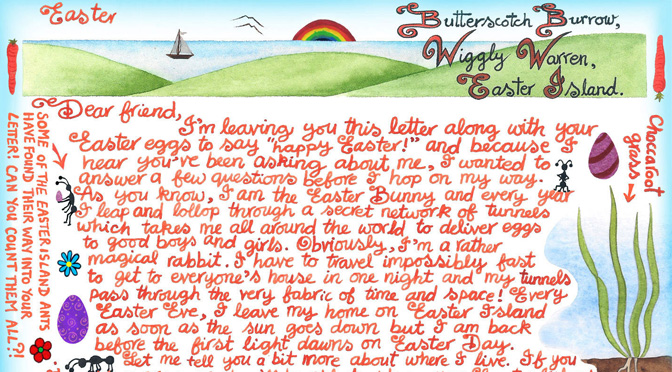 Easter
Butterscotch Burrow,
Wiggly Warren,
Easter Island.
Dear friend,
I'm leaving you this letter along with your
Easter eggs to say "happy Easter!" and because I
hear you've been asking about me, I wanted to
answer a few questions before I hop on my way.
As you know, I am the Easter Bunny and every year
I leap and lollop through a secret network of tunnels
which takes me all around the world to deliver eggs
to good boys and girls. Obviously, I'm a rather
magical rabbit. I have to travel impossibly fast
to get to everyone's house in one night and my tunnels
pass through the very fabric of time and space! Every
Easter Eve, I leave my home on Easter Island
as soon as the sun goes down but I am back
before the first light dawns on Easter Day.
Let me tell you a bit more about where I live. If you
SOME OF THE EASTER ISLAND ANTS
HAVE FOUND THEIR WAY INTO YOUR
LETTER! CAN YOU COUNT THEM ALL?!
grass